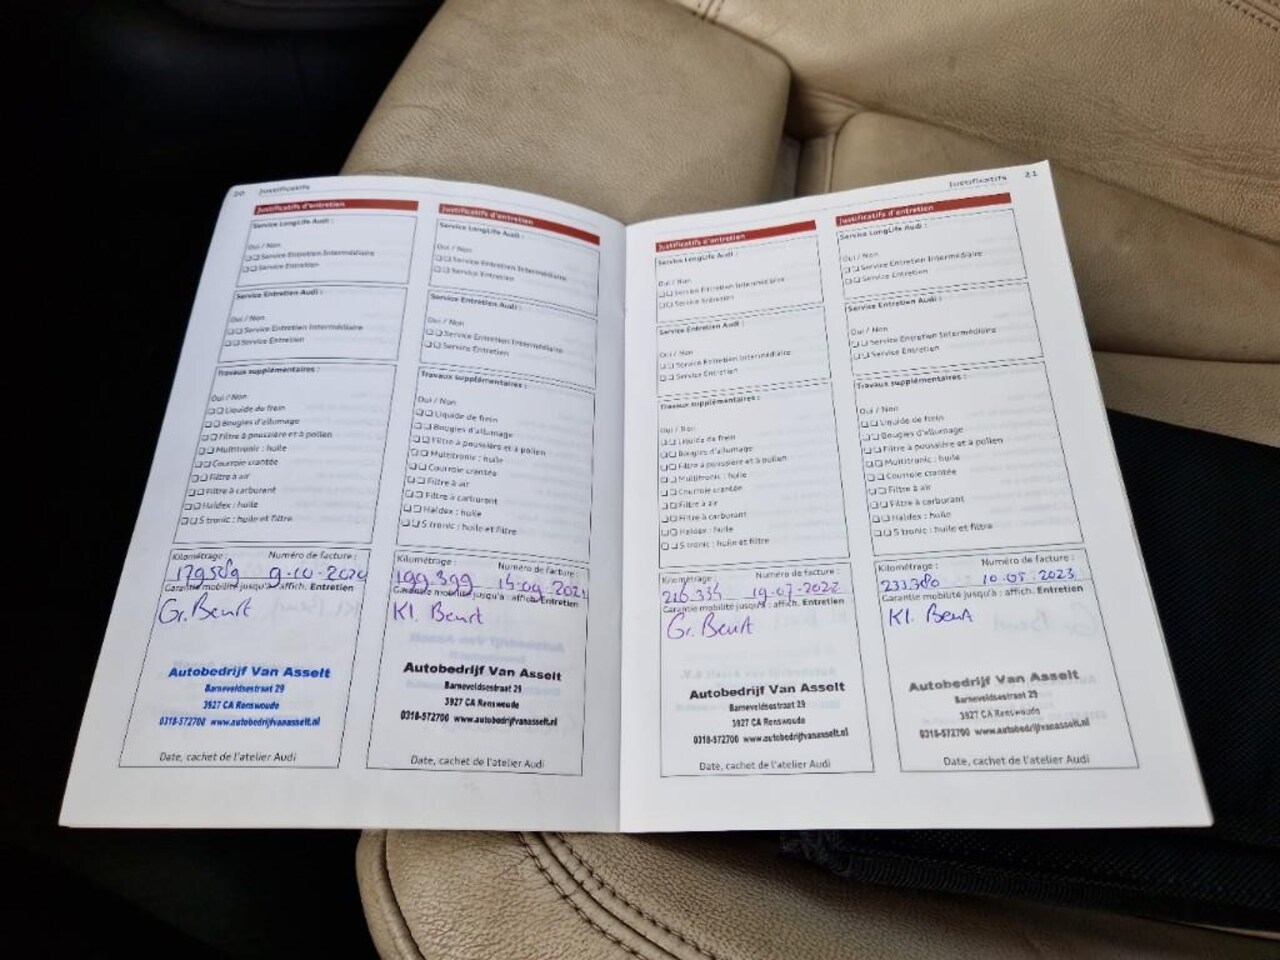 20 Justificatifs
Justificatifs d'entretien
Service LongLife Audi :
Oui / Non
Service Entretien Intermédiaire
Service Entretien
Service Entretien Audi :
Oui / Non
Service Entretien Intermédiaire
Service Entretien
Travaux supplémentaires :
Oui / Non
Liquide de frein
Bougies d'allumage
Filtre à poussière et à pollen
Multitronic : huile
Courroie crantée
Filtre à air
Filtre à carburant
Haldex : huile
S tronic : huile et filtre
Kilométrage : Numéro de facture :
179589 9-10-2020
Garantie mobilité jusqu'à : affich. Entretien
Gr. Beurt
Autobedrijf Van Asselt
Barneveldsestraat 29
3927 CA Renswoude
0318-572700 www.autobedrijfvanasselt.nl
Date, cachet de l'atelier Audi
Justificatifs d'entretien
Service LongLife Audi :
Oui / Non
Service Entretien Intermédiaire
Service Entretien
Service Entretien Audi :
Oui / Non
Service Entretien Intermédiaire
Service Entretien
Travaux supplémentaires :
Oui / Non
Liquide de frein
Bougies d'allumage
Filtre à poussière et à pollen
Multitronic : huile
Courroie crantée
Filtre à air
Filtre à carburant
Haldex : huile
S tronic : huile et filtre
Kilométrage : Numéro de facture :
199.399 14-09-2021
Garantie mobilité jusqu'à : affich. Entretien
Kl. Beurt
Autobedrijf Van Asselt
Barneveldsestraat 29
3927 CA Renswoude
0318-572700 www.autobedrijfvanasselt.nl
Date, cachet de l'atelier Audi
Justificatifs 21
Justificatifs d'entretien
Service LongLife Audi :
Oui / Non
Service Entretien Intermédiaire
Service Entretien
Service Entretien Audi :
Oui / Non
Service Entretien Intermédiaire
Service Entretien
Travaux supplémentaires :
Oui / Non
Liquide de frein
Bougies d'allumage
Filtre à poussière et à pollen
Multitronic : huile
Courroie crantée
Filtre à air
Filtre à carburant
Haldex : huile
S tronic : huile et filtre
Kilométrage : Numéro de facture :
216.334 19-07-2022
Garantie mobilité jusqu'à : affich. Entretien
Gr. Beurt
Autobedrijf Van Asselt
Barneveldsestraat 29
3927 CA Renswoude
0318-572700 www.autobedrijfvanasselt.nl
Date, cachet de l'atelier Audi
Justificatifs d'entretien
Service LongLife Audi :
Oui / Non
Service Entretien Intermédiaire
Service Entretien
Service Entretien Audi :
Oui / Non
Service Entretien Intermédiaire
Service Entretien
Travaux supplémentaires :
Oui / Non
Liquide de frein
Bougies d'allumage
Filtre à poussière et à pollen
Multitronic : huile
Courroie crantée
Filtre à air
Filtre à carburant
Haldex : huile
S tronic : huile et filtre
Kilométrage : Numéro de facture :
233.380 10-05-2023
Garantie mobilité jusqu'à : affich. Entretien
Kl. Beurt
Autobedrijf Van Asselt
Barneveldsestraat 29
3927 CA Renswoude
0318-572700 www.autobedrijfvanasselt.nl
Date, cachet de l'atelier Audi